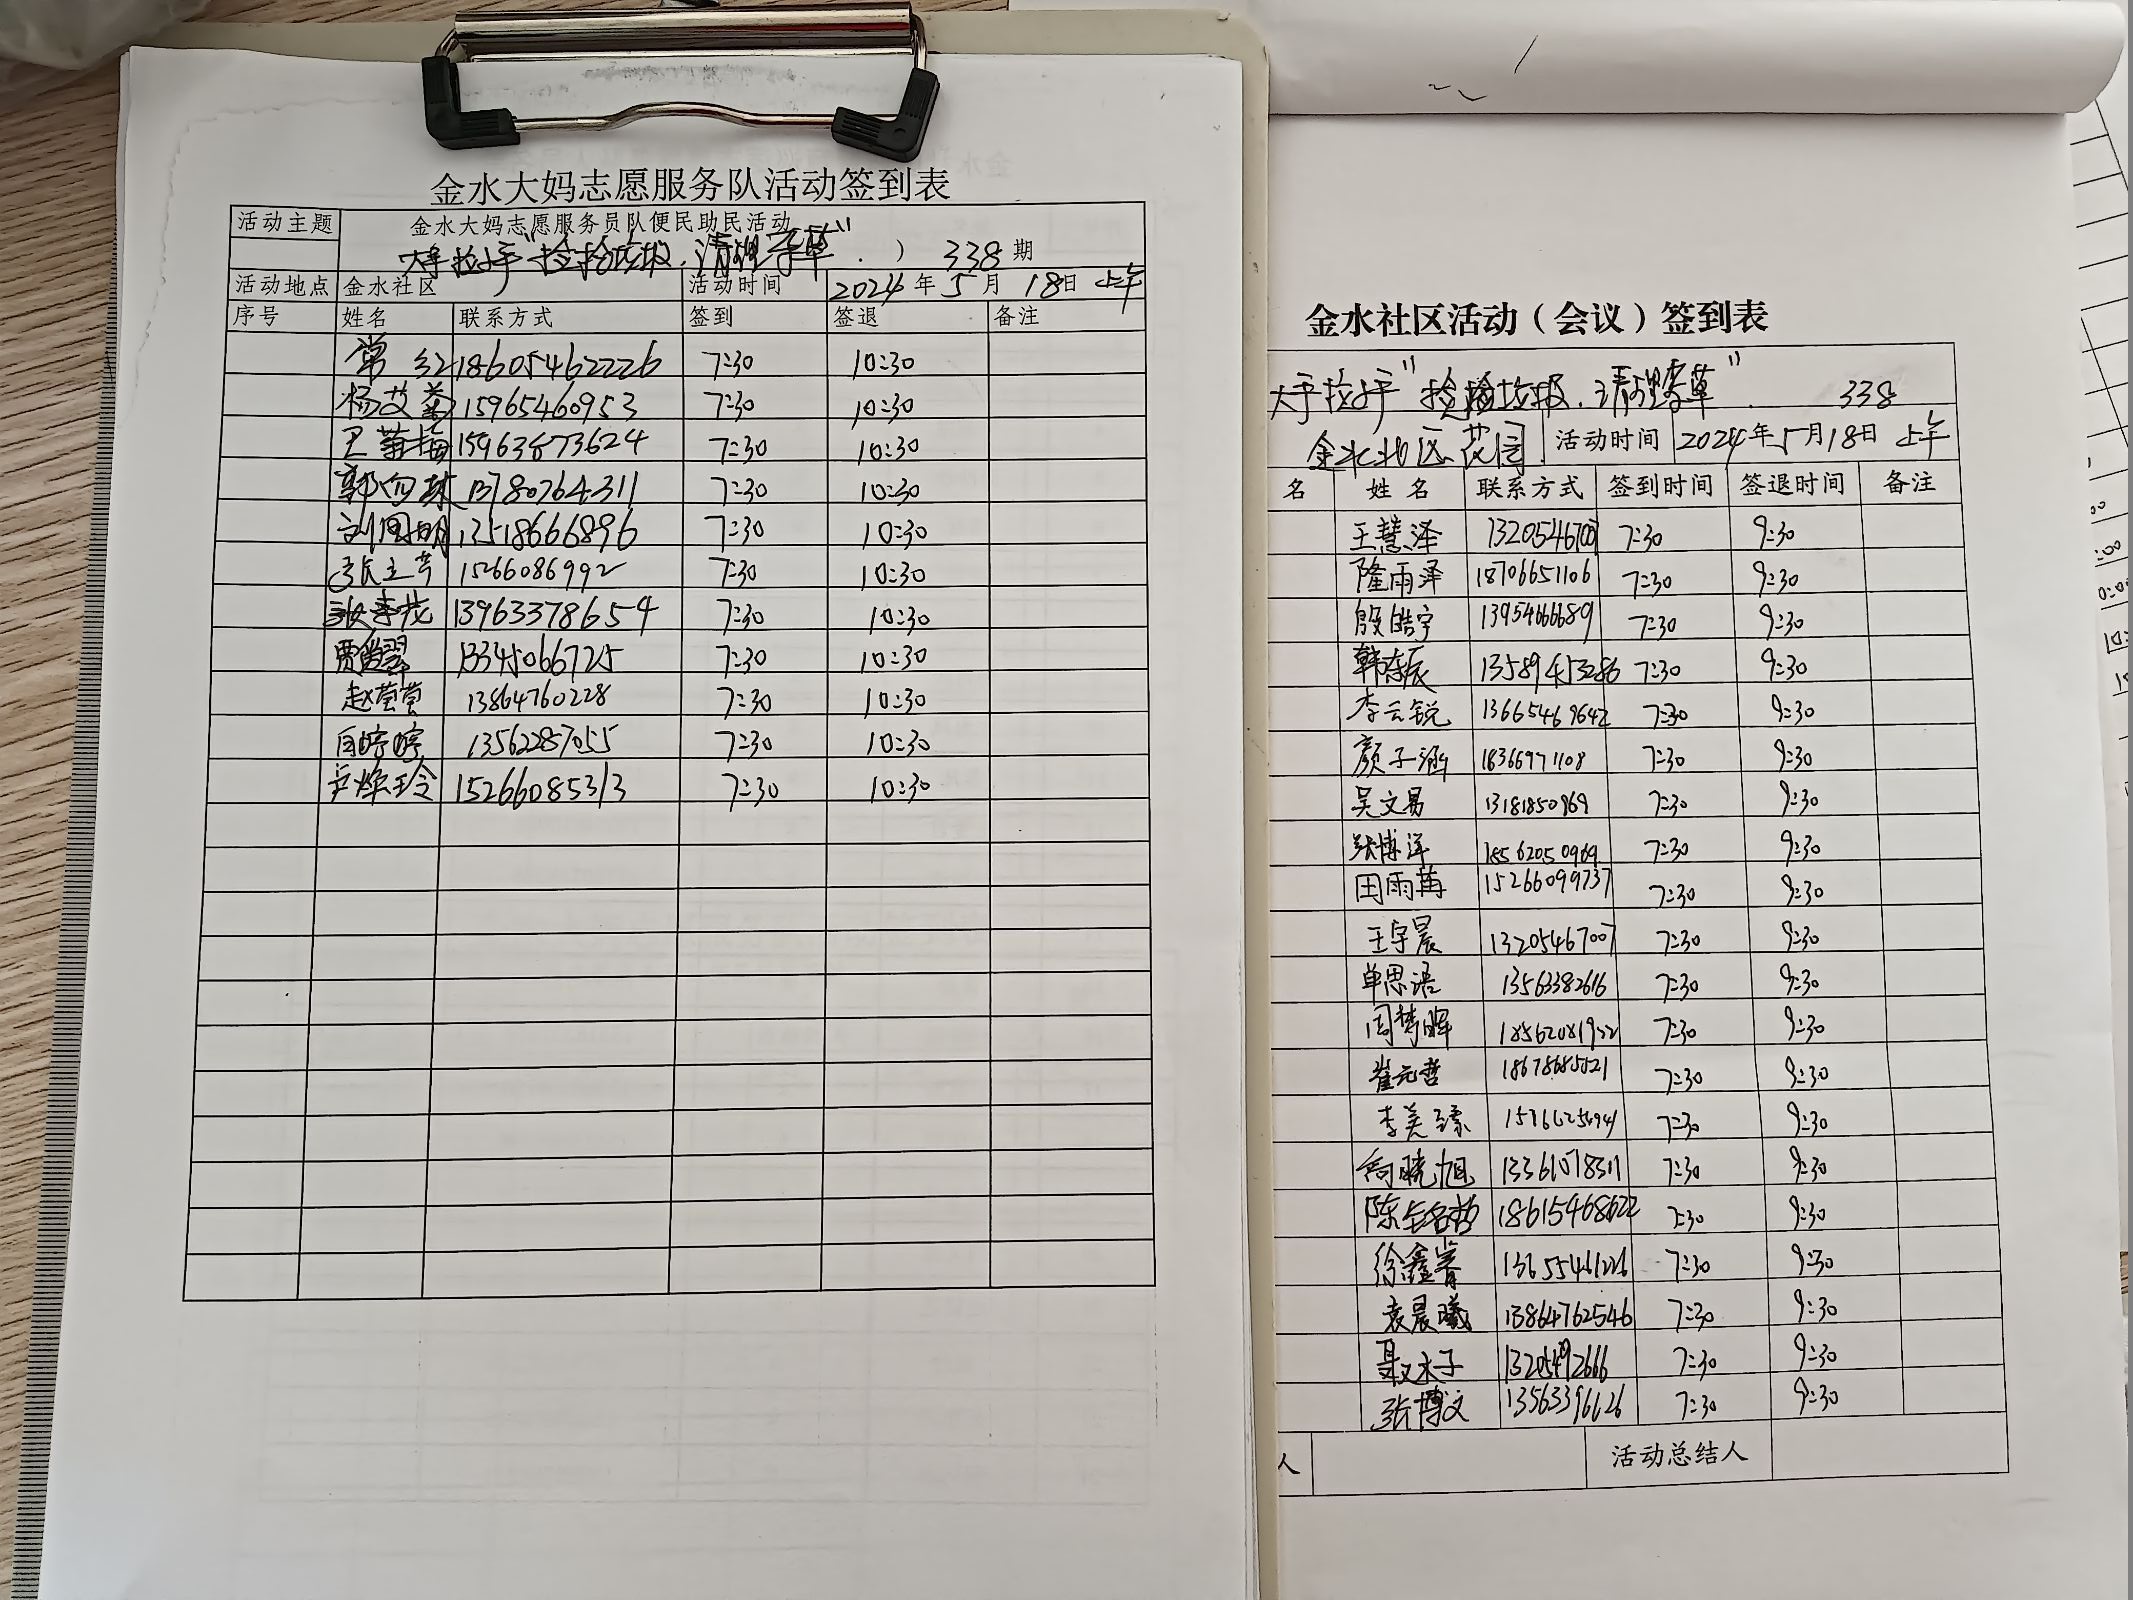 金水大妈志愿服务队活动签到表
活动主题 金水大妈志愿服务员队便民助民活动
大手拉小手"捡拾垃圾.清理杂草". ) 338 期
活动地点 金水社区 活动时间 2024年5月18日 上午
序号 姓名 联系方式 签到 签退 备注
常红 18605462226 7:30 10:30
杨艾 15965460953 7:30 10:30
王菊梅 15963573624 7:30 10:30
郭向林 13780764311 7:30 10:30
刘国明 13518666896 7:30 10:30
张立芳 15266086992 7:30 10:30
13963378654 7:30 10:30
贾 13345066725 7:30 10:30
赵莹莹 13864760228 7:30 10:30
白婷婷 13562287055 7:30 10:30
15266085313 7:30 10:30
金水社区活动（会议）签到表
大手拉小手"捡拾垃圾.清理杂草". 338
金水北区花园 活动时间 2024年5月18日 上午
名 姓名 联系方式 签到时间 签退时间 备注
王慧泽 7:30 9:30
隆雨泽 18706651106 7:30 9:30
殷皓宇 13954666689 7:30 9:30
韩东辰 13589453286 7:30 9:30
李云锐 13665469642 7:30 9:30
颜子涵 18366971108 7:30 9:30
吴文易 13181850969 7:30 9:30
张博洋 18562050969 7:30 9:30
田雨 15266099737 7:30 9:30
王宇晨 13205467007 7:30 9:30
单思语 13563382616 7:30 9:30
周梦晖 18562081922 7:30 9:30
崔元哲 18678685521 7:30 9:30
李美臻 7:30 9:30
尚晓旭 13361078311 7:30 9:30
陈 18615468622 7:30 9:30
徐鑫 13655461226 7:30 9:30
袁晨曦 13864762546 7:30 9:30
聂水子 13205492666 7:30 9:30
张博文 13563396626 7:30 9:30
人 活动总结人